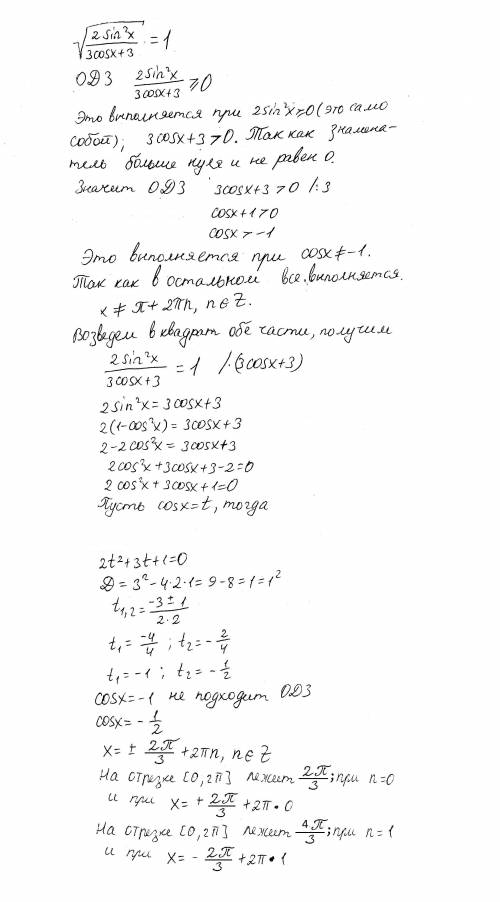 √(2sin²x / 3cosx+3) = 1
ОДЗ 2sin²x / 3cosx+3 ≥ 0
Это выполняется при 2sin²x≥0 (это само
собой); 3cosx+3>0. Так как знамена-
тель больше нуля и не равен 0.
Значит ОДЗ 3cosx+3>0 /:3
cosx+1>0
cosx>-1
Это выполняется при cosx≠-1.
Так как в остальном все выполняется.
x ≠ π+2πn, n∈Z.
Возведем в квадрат обе части, получим
2sin²x / 3cosx+3 = 1 /·(3cosx+3)
2sin²x = 3cosx+3
2(1-cos²x) = 3cosx+3
2-2cos²x = 3cosx+3
2cos²x+3cosx+3-2=0
2cos²x+3cosx+1=0
Пусть cosx=t, тогда
2t²+3t+1=0
D = 3²-4·2·1 = 9-8=1=1²
t₁,₂ = -3±1 / 2·2
t₁ = -4/4 ; t₂ = -2/4
t₁ = -1 ; t₂ = -1/2
cosx=-1 не подходит ОДЗ
cosx = -1/2
x = ± 2π/3 + 2πn, n∈Z
На отрезке [0,2π] лежит 2π/3; при n=0
и при x = + 2π/3 + 2π·0
На отрезке [0,2π] лежит 4π/3; при n=1
и при x = - 2π/3 + 2π·1